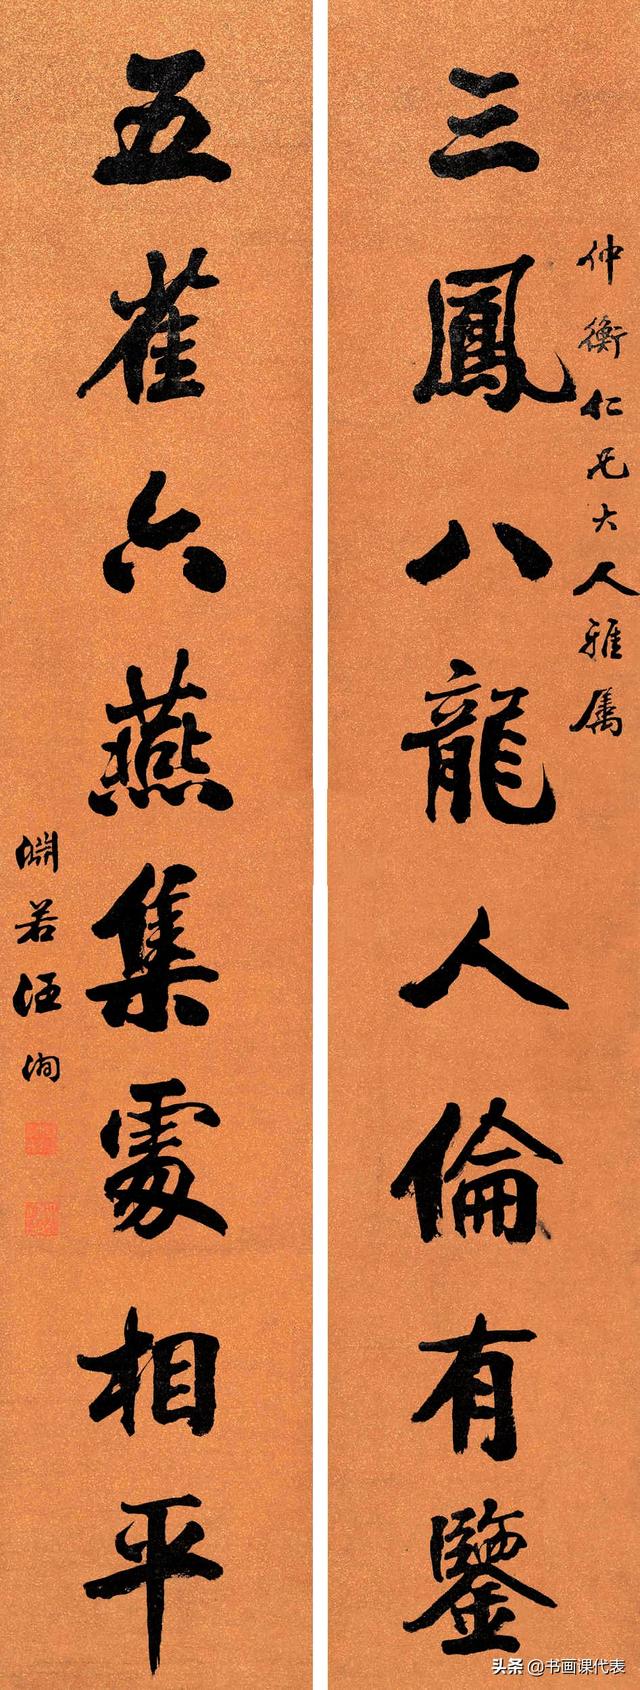 仲衡仁兄大人雅属
三鳳八龍人倫有鑒
五雀六燕集處相平
淵若汪洵
头条 @书画课代表